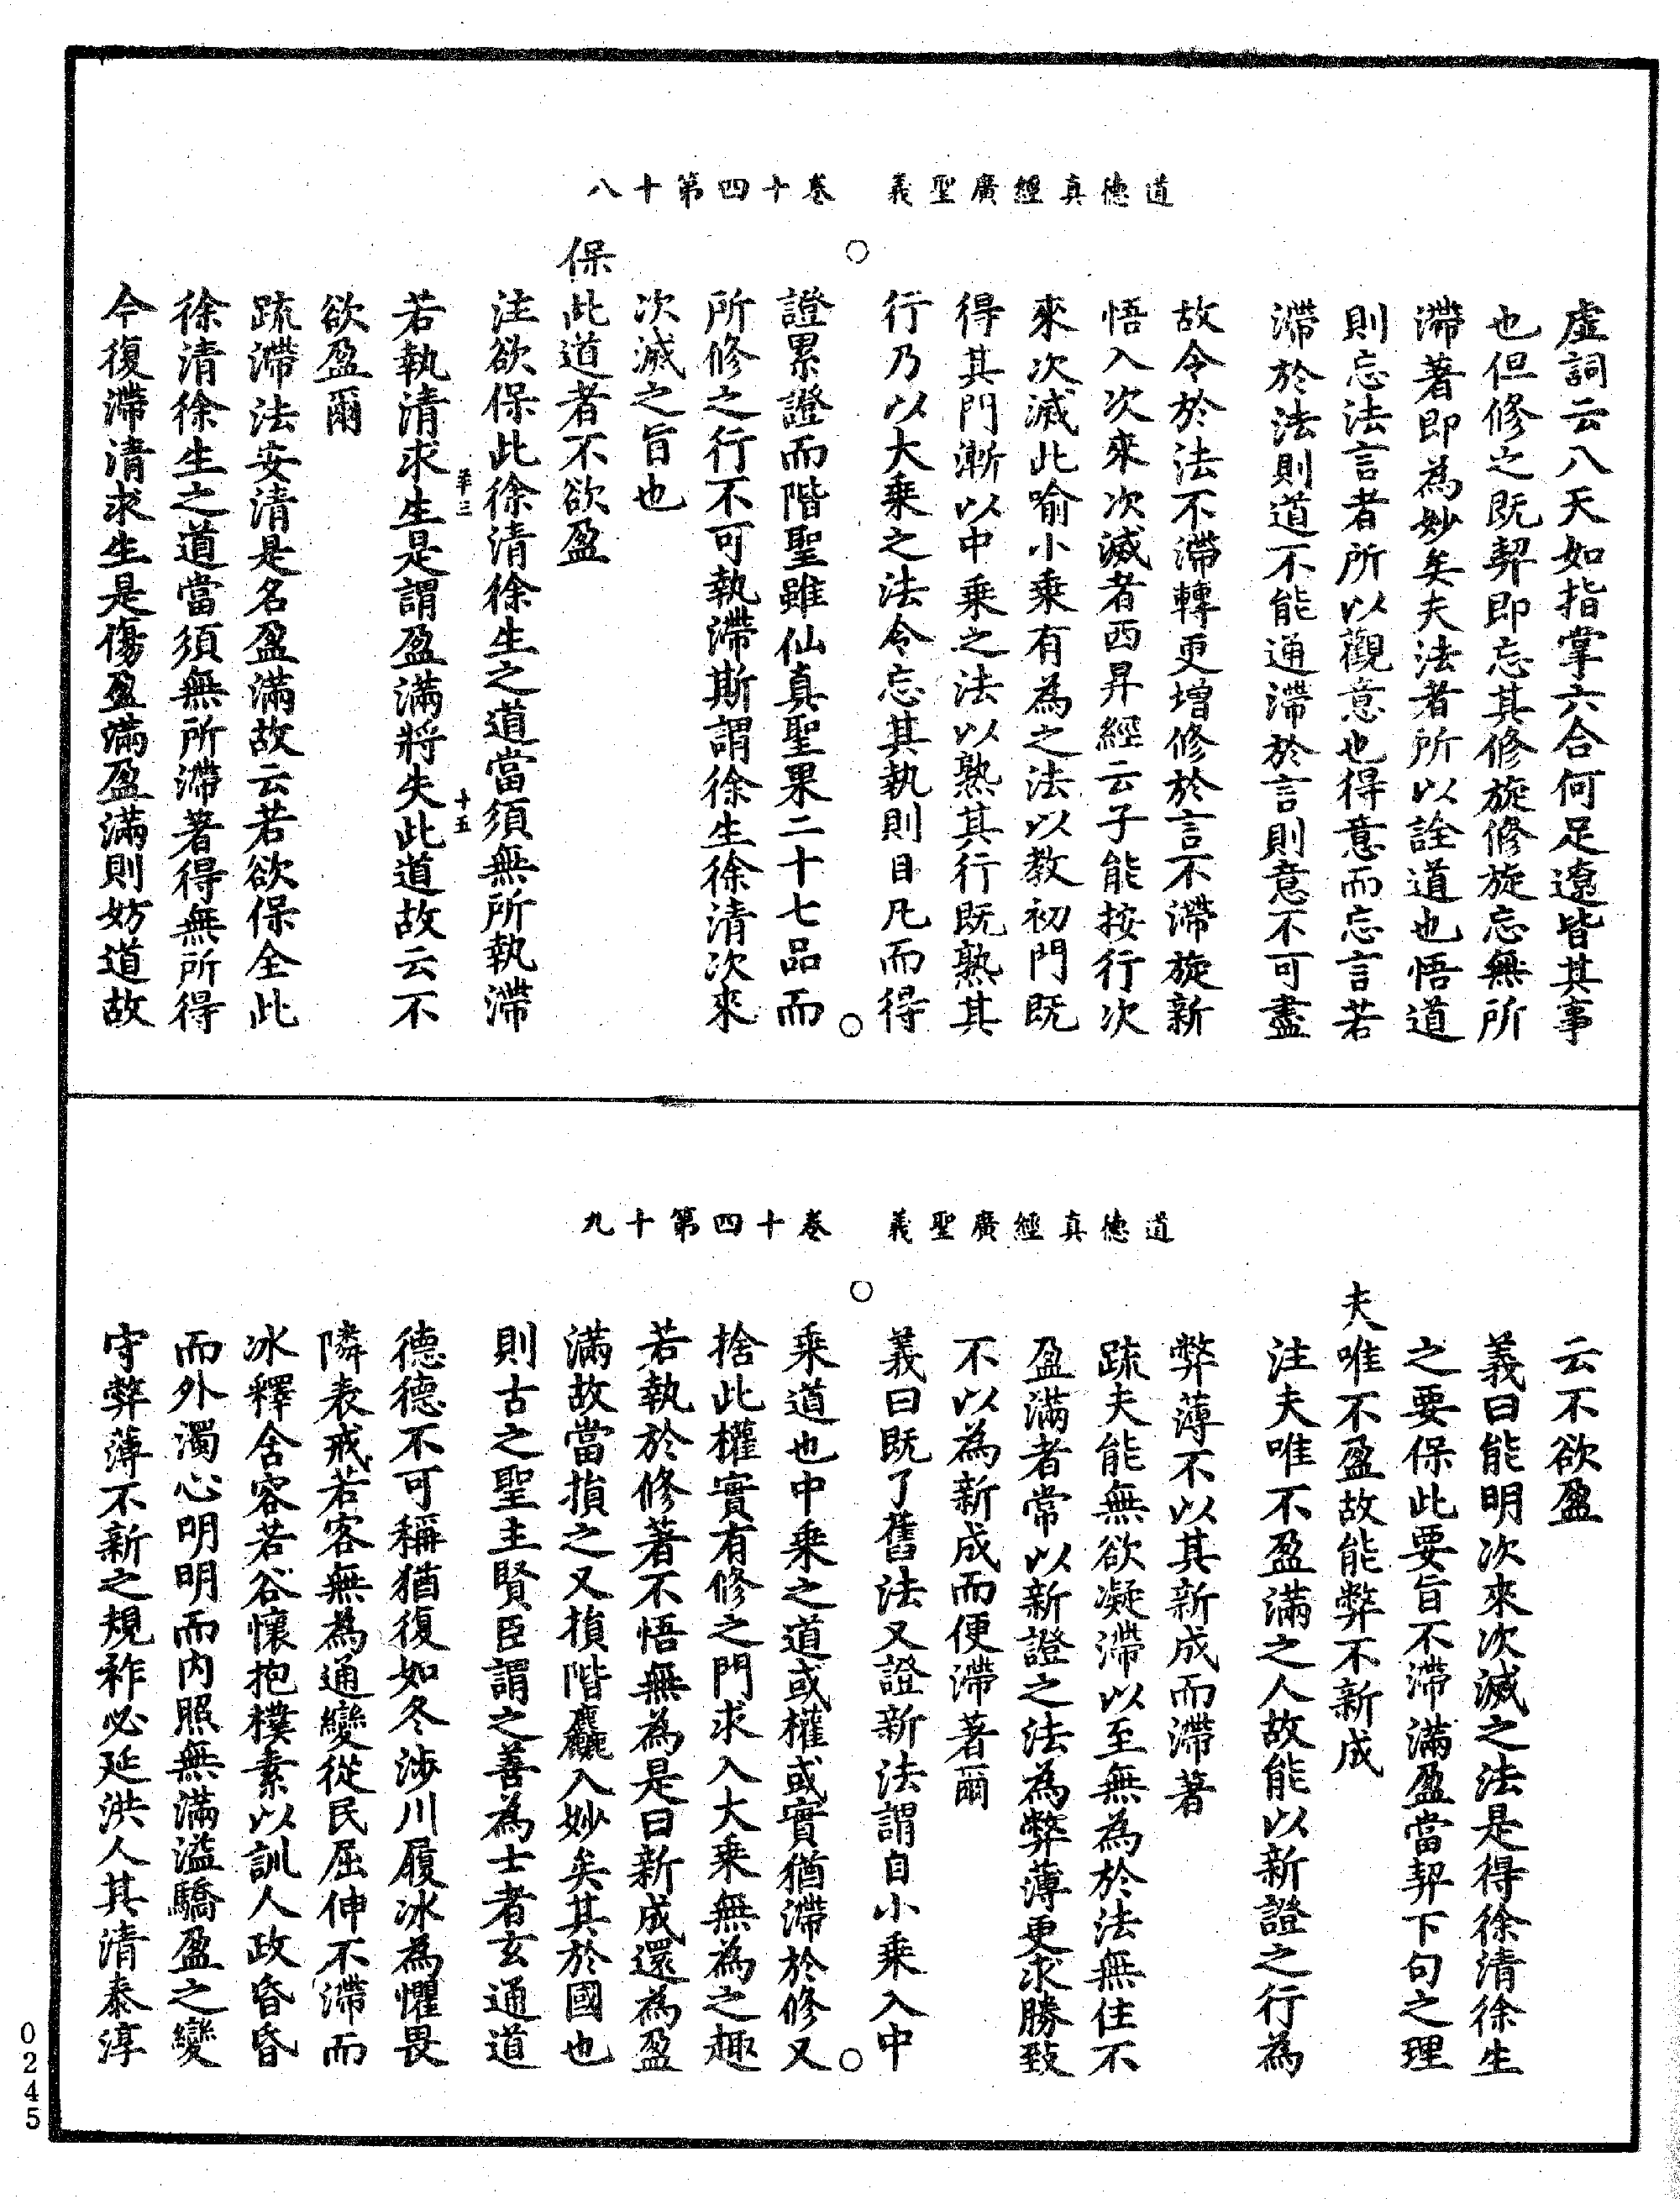 道德真經廣聖義　卷十四第十八
虛詞云八天如指掌六合何足遼皆其事
也但修之既契即忘其修旋修旋忘無所
滯著即為妙矣夫法者所以詮道也悟道
則忘法言者所以觀意也得意而忘言若
滯於法則道不能通滯於言則意不可盡
故令於法不滯轉更增修於言不滯旋新
悟入次來次滅者西昇經云子能按行次
來次滅此喻小乘有為之法以教初門既
得其門漸以中乘之法以熟其行既熟其
行乃以大乘之法令忘其執則目凡而得
證累證而階聖雖仙真聖果二十七品而
所修之行不可執滯斯謂徐生徐清次來
次滅之旨也
保此道者不欲盈
注欲保此徐清徐生之道當須無所執滯
若執清求生是謂盈滿將失此道故云不
羊三　十五
欲盈爾
疏滯法安清是名盈滿故云若欲保全此
徐清徐生之道當須無所滯著得無所得
今復滯清求生是傷盈滿盈滿則妨道故
道德真經廣聖義　卷十四第十九
云不欲盈
義曰能明次來次滅之法是得徐清徐生
之要保此要旨不滯滿盈當契下句之理
夫唯不盈故能弊不新成
注夫唯不盈滿之人故能以新證之行為
弊薄不以其新成而滯著
疏夫能無欲凝滯以至無為於法無住不
盈滿者常以新證之法為弊薄更求勝致
不以為新成而便滯著爾
義曰既了舊法又證新法謂自小乘入中
乘道也中乘之道或權或實猶滯於修又
捨此權實有修之門求入大乘無為之趣
若執於修著不悟無為是曰新成還為盈
滿故當損之又損階麤入妙矣其於國也
則古之聖主賢臣謂之善為士者玄通道
德德不可稱猶復如冬涉川履冰為懼畏
隣表戒若客無為通變從民屈伸不滯而
冰釋含容若谷懷抱樸素以訓人政昏昏
而外濁心明明而內照無滿溢驕盈之變
守弊薄不新之規祚必延洪人其清泰淳
0245